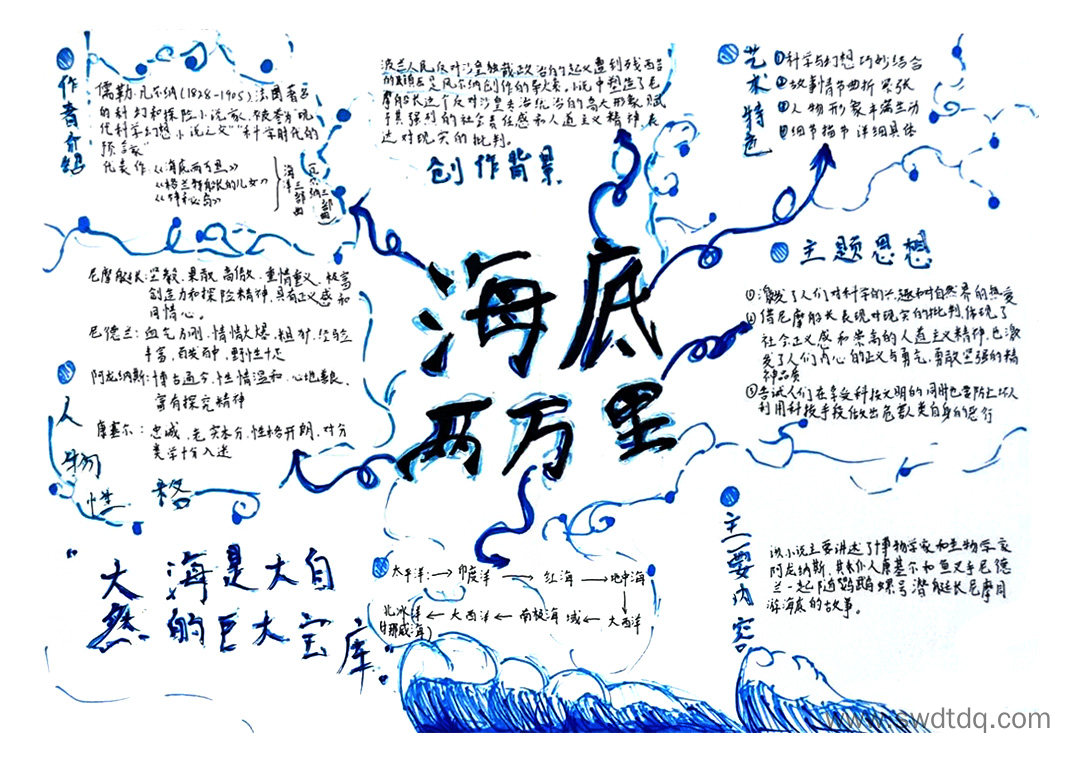 海底
两万里
作者介绍
儒勒·凡尔纳(1828-1905)法国著名
的科幻和探险小说家，被誉为"现
代科学幻想小说之父""科学时代的
预言家"
代表作《海底两万里》
《格兰特船长的儿女》
《神秘岛》
海洋三部曲
凡尔纳三部曲
波兰人民反对沙皇独裁政治的起义遭到残酷
的镇压是凡尔纳创作的导火索。小说中塑造了尼
摩船长这个反对沙皇专治统治的高大形象，赋
予其强烈的社会责任感和人道主义精神，表
达对现实的批判。
创作背景
艺术特色
①科学与幻想巧妙结合
②故事情节曲折紧张
③人物形象丰满生动
④细节描节详细具体
主题思想
①激发了人们对科学的兴趣和对自然界的热爱
②借尼摩船长表现对现实的批判，体现了
社会正义感和崇高的人道主义精神，也激
发了人们内心的正义与勇气，勇敢坚强的精
神品质
③告诫人们在享受科技文明的同时也要防止坏人
利用科技手段做出危害人类自身的恶行
尼摩船长：坚毅、果敢、高傲、重情重义、极富
创造力和探险精神，具有正义感和
同情心。
尼德兰：血气方刚，情情火爆，粗犷，经验
丰富，百发百中，野性十足
阿龙纳斯：博古通今，性情温和，心地善良，
富有探究精神
康塞尔：忠诚，老实本分，性格开朗，对分
类学十分入迷
人物性格
主要内容
该小说主要讲述了博物学家和生物学家
阿龙纳斯，其仆人康塞尔和鱼叉手尼德
兰一起随鹦鹉螺号潜艇长尼摩周
游海底的故事。
"大海是大自
然的巨大宝库。"
太平洋：→印度洋→红海→地中海
↓
北冰洋←大西洋←南极海域←大西洋
(挪威海)
www.swdtdq.com